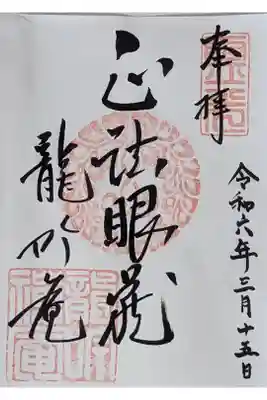 奉拝
令和六年三月十五日
正法眼蔵
龍吟庵